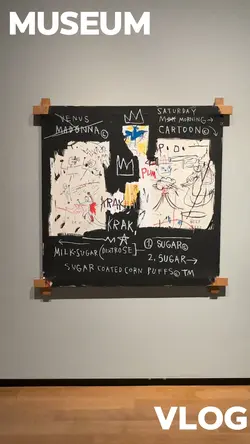 MUSEUM
VENUS
MADONNA©
SATURDAY
MORNING→
CARTOON©
KRAK
KRAK,
MILK-SUGAR (DEXTROSE
① SUGAR©
2. SUGAR→
SUGAR COATED CORN PUFFS© TM
VLOG